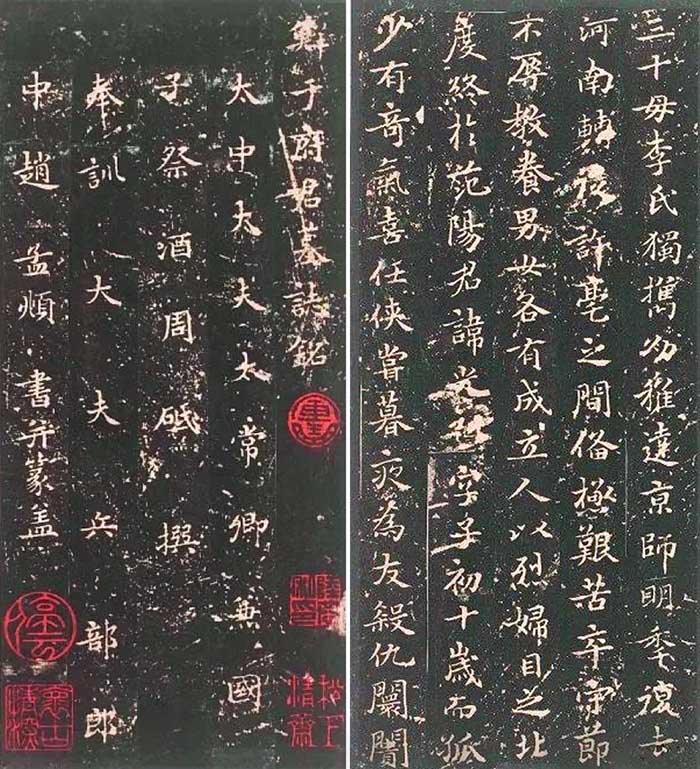 鮮于府君墓誌銘
太中大夫太常卿兼國
子祭酒周砥撰
奉訓大夫兵部郎
中趙孟頫書并篆盖
三十毋李氏獨攜幼稚達京師明年復去
河南轉許亳之間備極艱苦卒守節
不辱教養男女各有成立人以烈婦目之北
度終於范陽君諱光祖字子初十歲而孤
少有竒氣喜任俠嘗暮夜為友殺仇闤闠